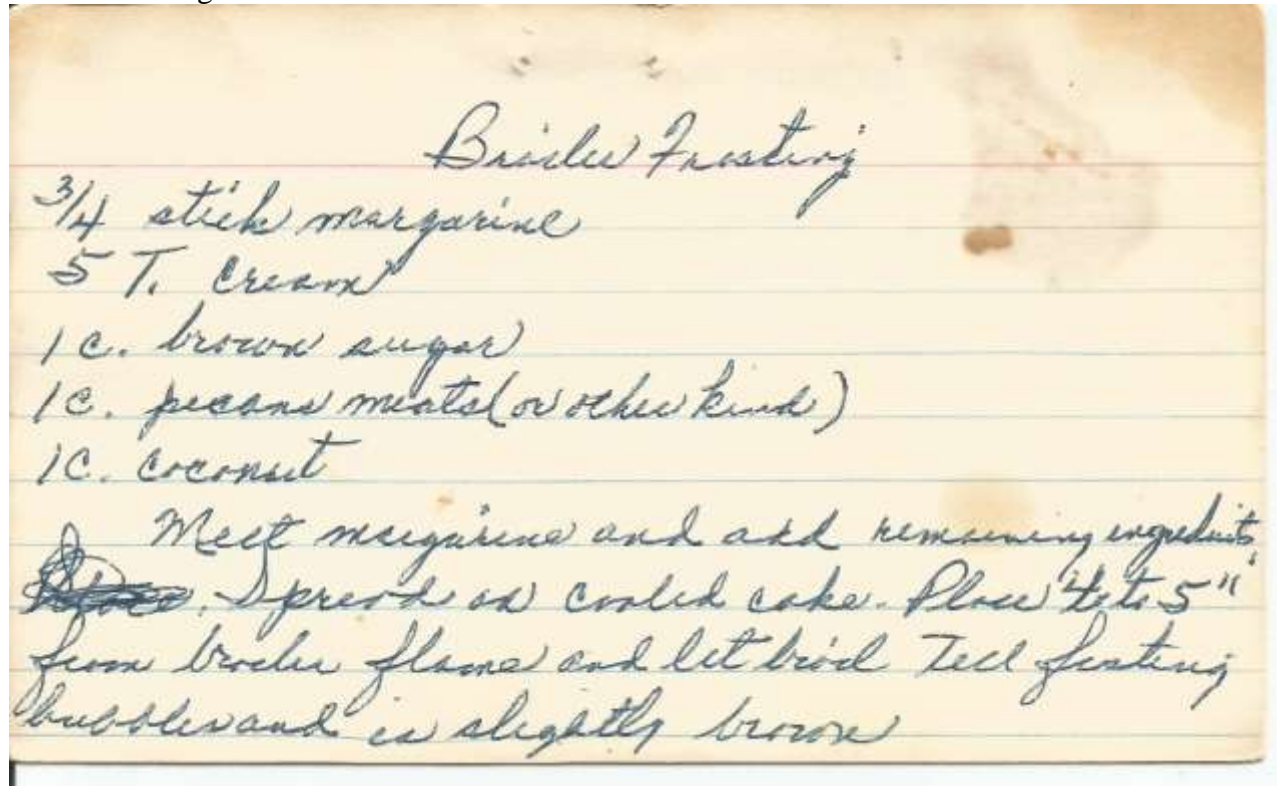 Broiler Frosting
3/4 stick margarine
5 T. cream
1 c. brown sugar
1 c. pecans meats (or other kind)
1 c. coconut
Melt margarine and add remaining ingredients.
Spread on cooled cake. Place 4 to 5"
from broiler flame and let broil Till frosting
bubbles and is slightly brown